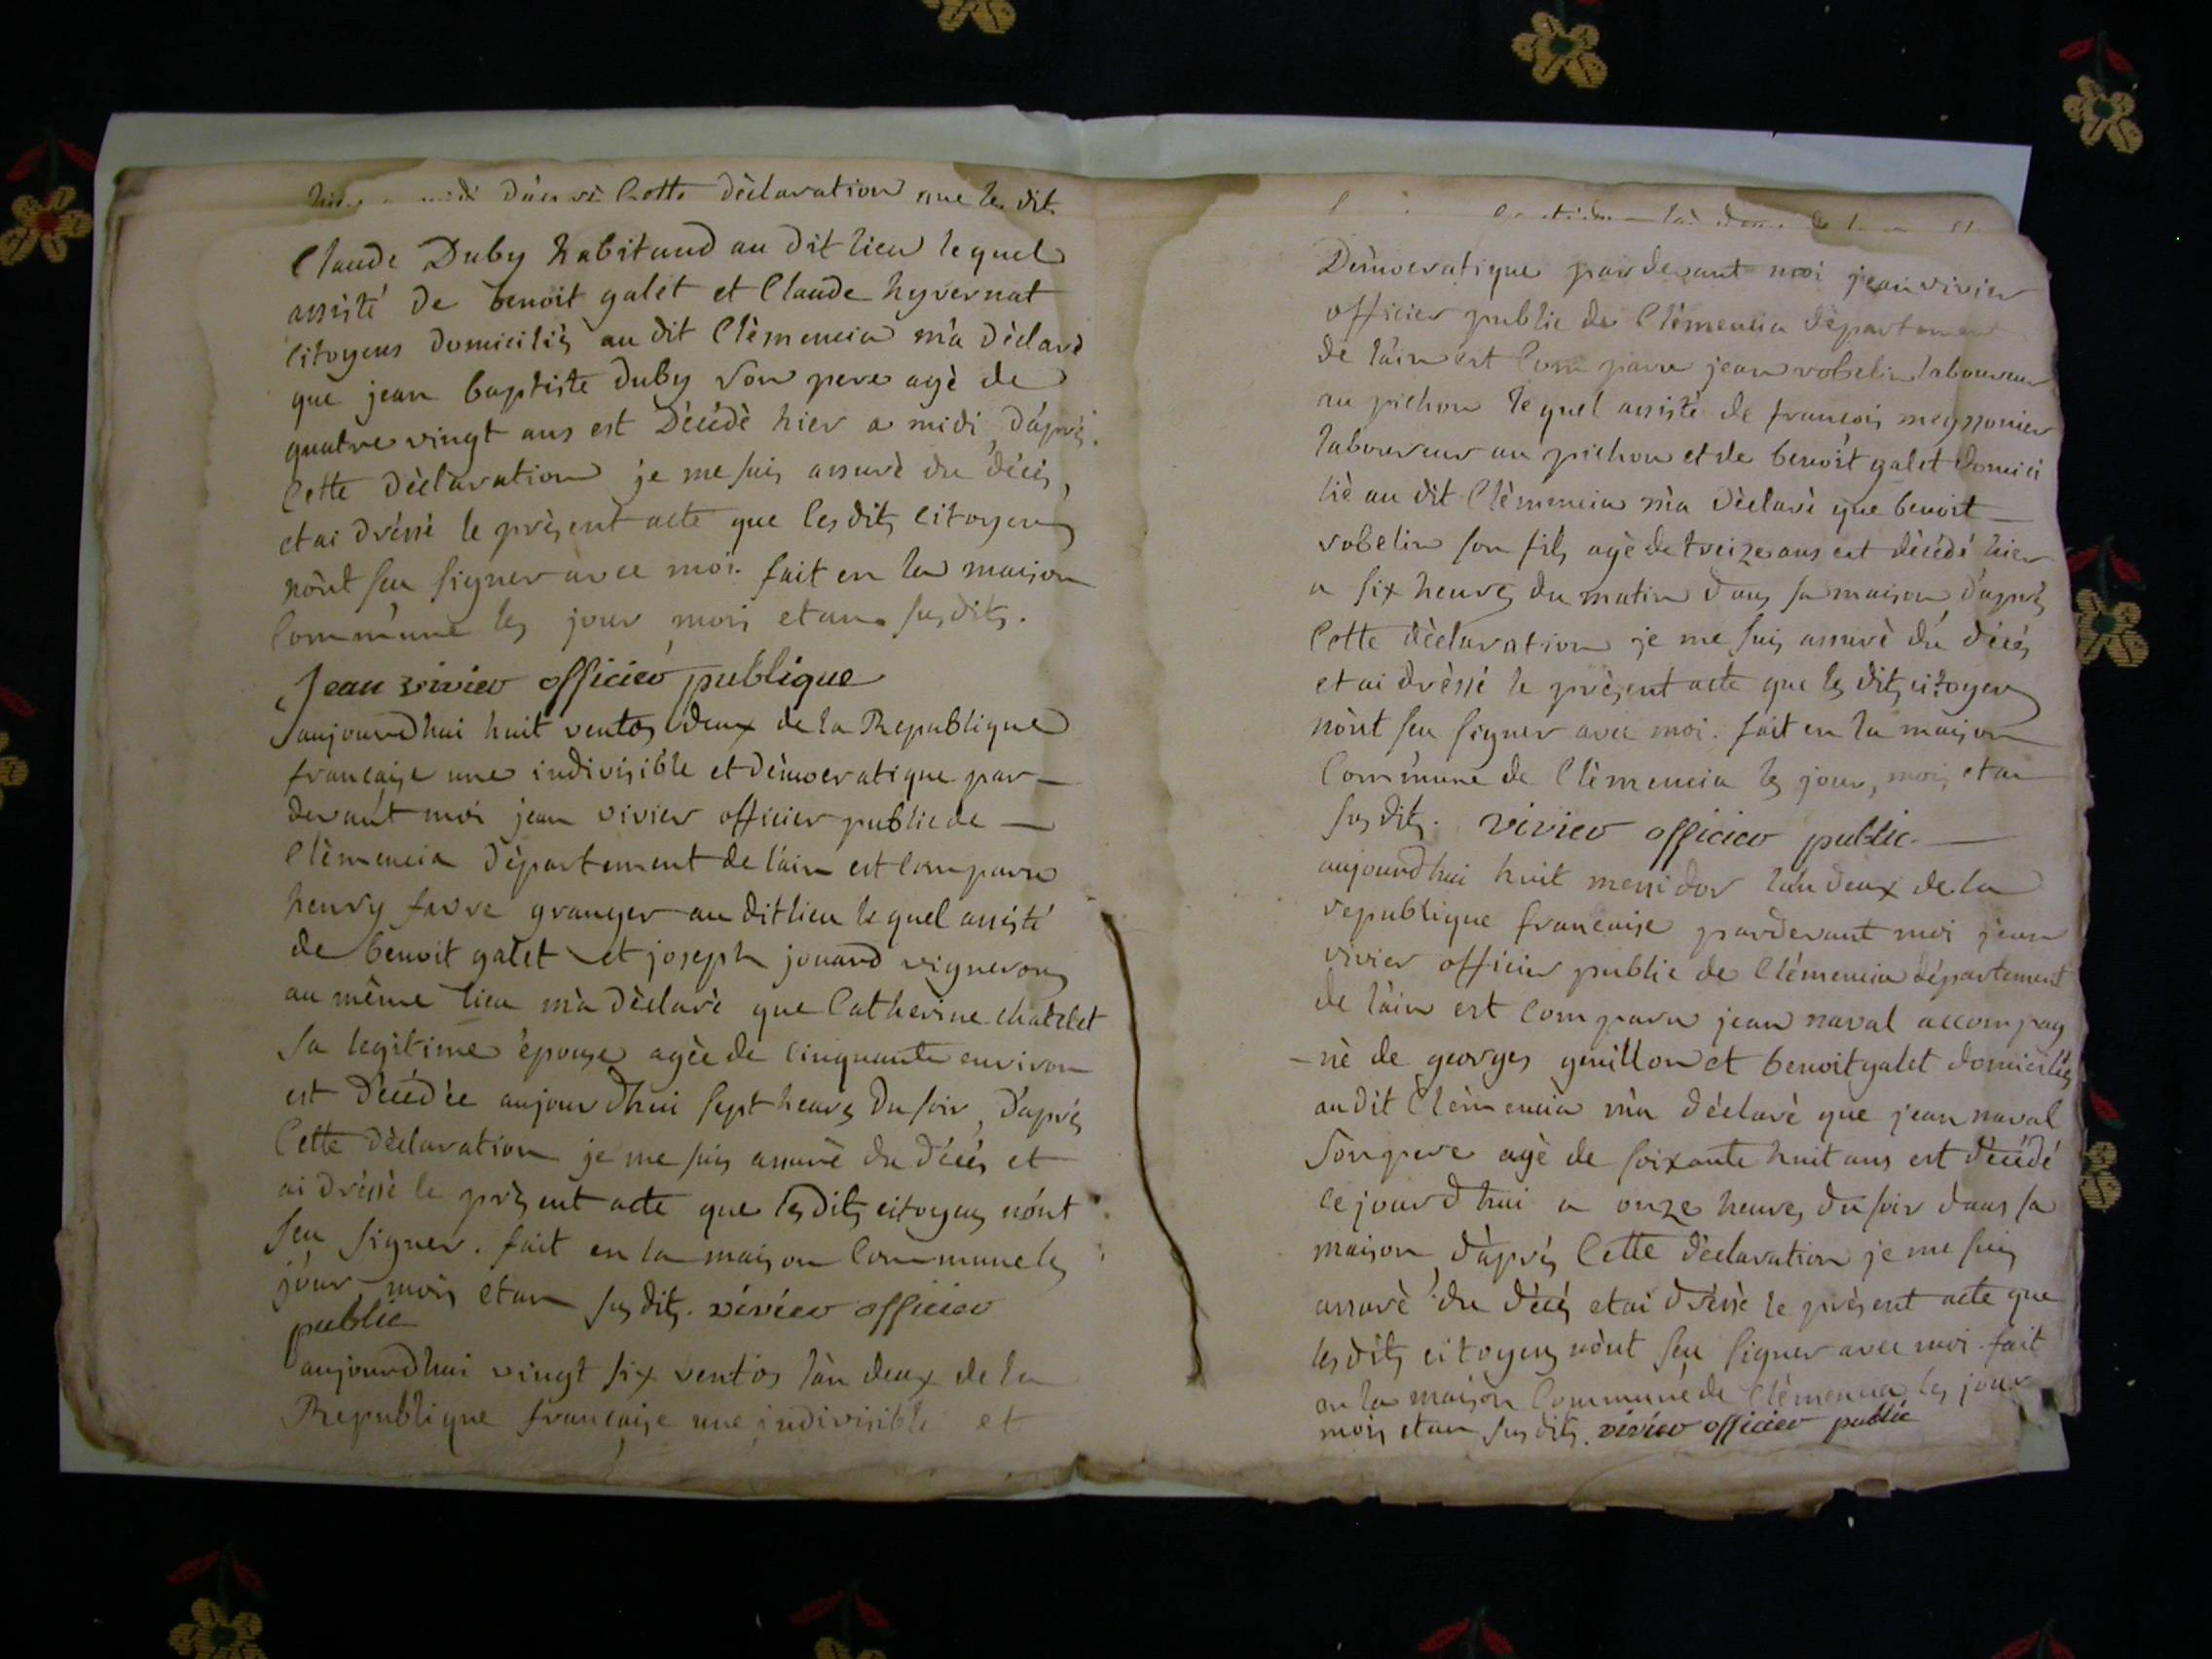 midi cette déclaration que les dit
Claude Duby habitand au dit lieu lequel
assisté de benoit galet et Claude hyvernat
citoyens domiciliés au dit Clèmencia m'a déclaré
que jean baptiste duby son pere agè de
quatre vingt ans est Décédè hier a midi, d'après
Cette dèclaration je me suis assurè du décès,
et ai drèssè le prèsent acte que les dits citoyens
n'ont seu signer avec moi. fait en la maison
Commune les jour mois et an susdits.
Jean vivier officier publique
aujourdhui huit ventos deux de la Republique
francaise une indivisible et dèmocratique par-
devant moi jean vivier officier public de —
Clèmencia Dèpartement de l'ain est comparu
henry favre granger au dit lieu lequel assisté
de benoit galet et joseph jouard vignerons
au mème lieu m'a dèclarè que Catherine chatelet
sa legitime èpouse agèe de cinquante environ
est décédèe aujourdhui sept heures du soir, d'après
Cette dèclaration je me suis assurè du décès et
ai drèssè le prèsent acte que les dits citoyens n'ont
seu signer. fait en la maison Commune les
jour mois et an susdits. vivier officier
public
aujourdhui vingt six ventos l'an deux de la
Republique francaise une indivisible et
Dèmocratique pardevant moi jean vivier
officier public de Clèmencia dèpartement
de l'ain est Comparu jean robelin laboureur
au pichon lequel assistè de francois meyssonier
laboureur au pichon et de benoit galet domici
liè au dit Clèmencia m'a dèclarè que benoit —
robelin son fils agè de treize ans est dècédé hier
a six heures du matin dans sa maison, d'après
Cette dèclaration je me suis assurè du décès
et ai drèssé le prèsent acte que les dits citoyens
n'ont seu signer avec moi. fait en la maison
Commune de Clèmencia les jour, mois, et an
susdits. vivier officier public. —
aujourdhui huit messidor l'an deux de la
republique francaise pardevant moi jean
vivier officier public de Clèmencia département
de l'ain est Comparu jean naval accompag
-nè de georges genillon et benoit galet domiciliés
au dit Clèmencia m'a déclarè que jean naval
son pere agè de soixante huit ans est décédé
ce jourdhui a onze heures du soir dans sa
maison, d'après Cette dèclaration je me suis
assurè du décès et ai drèssè le prèsent acte que
les dits citoyens n'ont seu signer avec moi. fait
en la maison Commune de Clèmencia les jour
mois et an susdits. vivier officier public